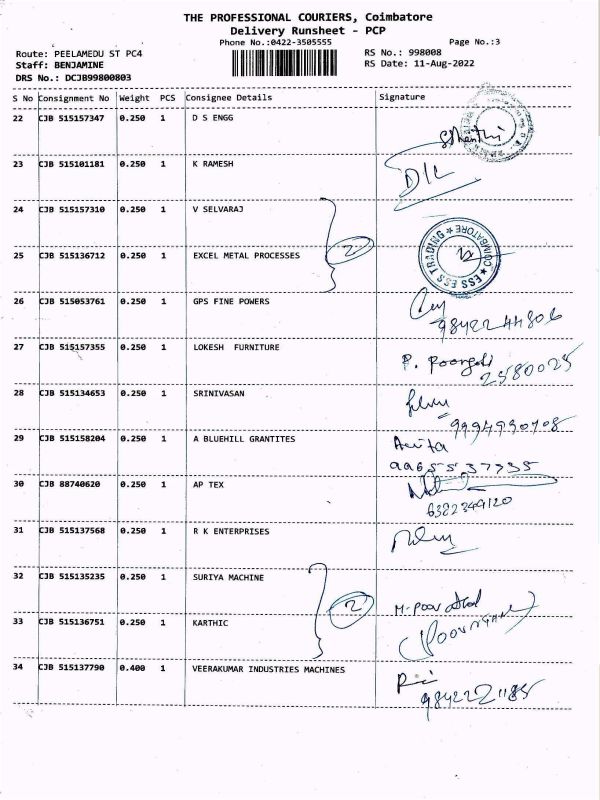 THE PROFESSIONAL COURIERS, Coimbatore
Delivery Runsheet - PCP
Phone No.:0422-3505555 Page No.:3
Route: PEELAMEDU ST PC4 RS No.: 998008
Staff: BENJAMINE RS Date: 11-Aug-2022
DRS No.: DCJB99800803
S No Consignment No Weight PCS Consignee Details Signature
22 CJB 515157347 0.250 1 D S ENGG
23 CJB 515101181 0.250 1 K RAMESH
24 CJB 515157310 0.250 1 V SELVARAJ
2
25 CJB 515136712 0.250 1 EXCEL METAL PROCESSES
ESS ESS TRADING ★ COIMBATORE ★
26 CJB 515053761 0.250 1 GPS FINE POWERS
98422 44806
27 CJB 515157355 0.250 1 LOKESH FURNITURE
2580025
28 CJB 515134653 0.250 1 SRINIVASAN
9994930708
29 CJB 515158204 0.250 1 A BLUEHILL GRANTITES
Anita
9965537335
30 CJB 88740620 0.250 1 AP TEX
6382349120
31 CJB 515137568 0.250 1 R K ENTERPRISES
32 CJB 515135235 0.250 1 SURIYA MACHINE
2
33 CJB 515136751 0.250 1 KARTHIC
34 CJB 515137790 0.400 1 VEERAKUMAR INDUSTRIES MACHINES
9842221185